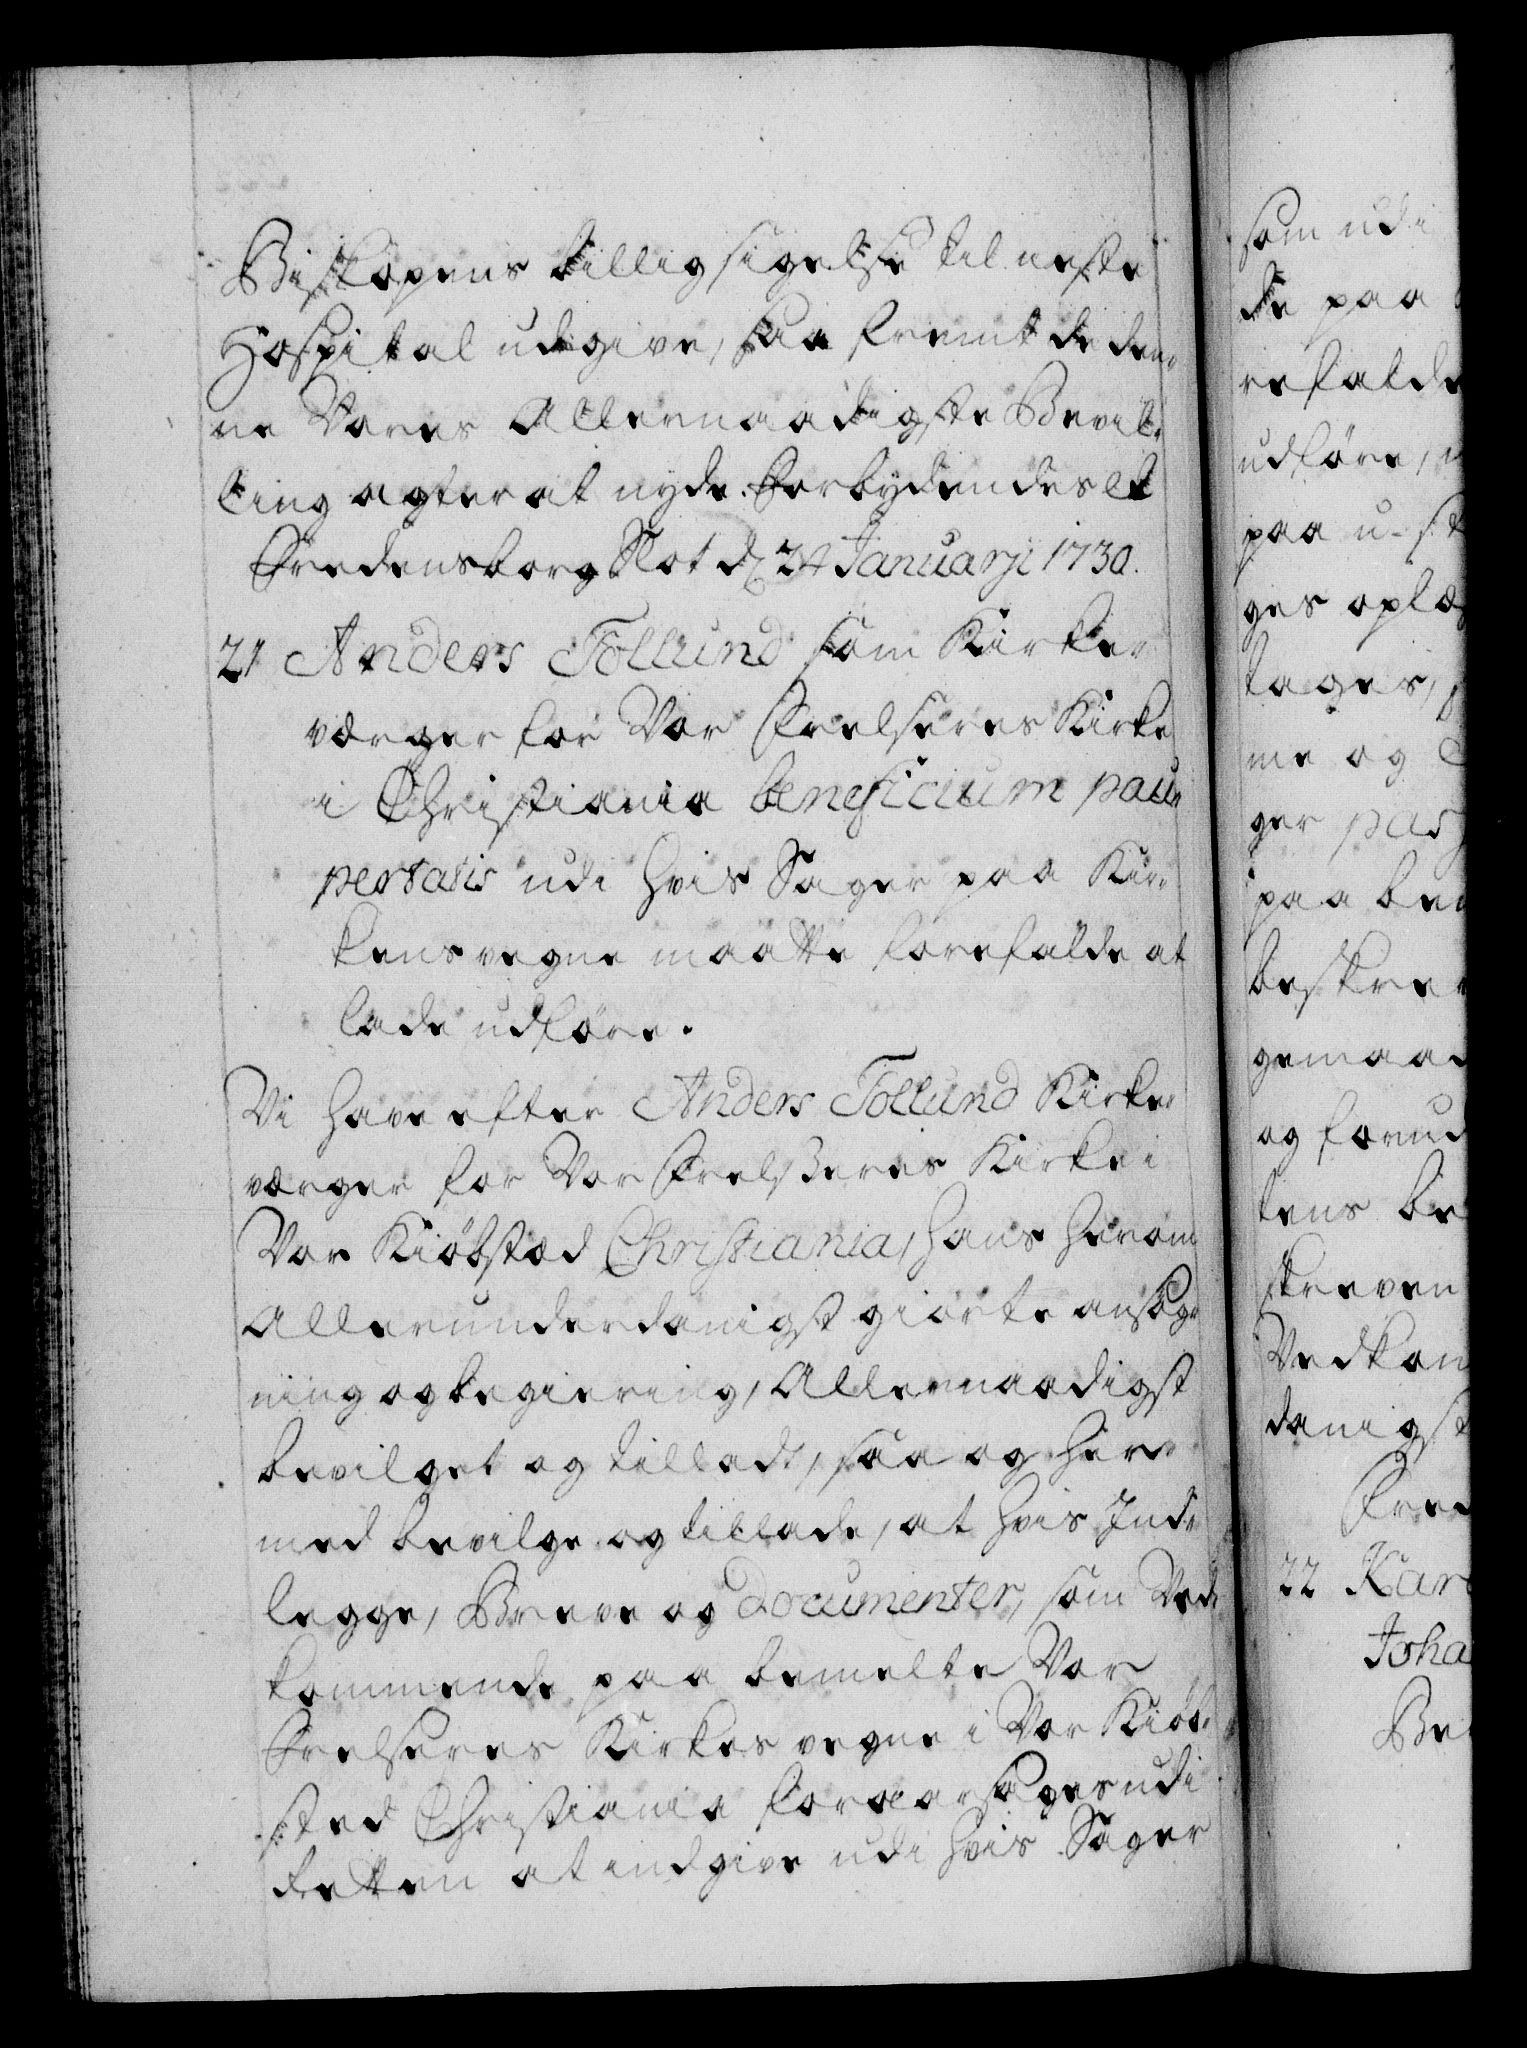 Biskopens billigsigelse til neste
Hospital udgive, saa fremt de den-
ne Vores Allernaadigste Bevil-
ling agter at nyde. Forbydendes et
Fredensborg Slot d. 24 Januarji 1730.
21 Anders Tollund som Kirke-
værger for Vor Frelseres Kirke
i Christiania beneficium pau-
pertatis udi hvis Sager paa Kir-
kens vegne maatte forefalde at
lade udføre.
Vi have efter Anders Tollund Kirke-
værger for Vor Frelseres Kirke i
Vor Kiøbstæd Christiania, hans herom
Allerunderdanigst giorte ansøg-
ning og begiering, Allernaadigst
bevilget og tilladt, saa og her-
med bevilge og tillade, at hvis Ind-
legge, Breve og Documenter, som Ved-
kommende paa bemelte Vor
Frelseres Kirkes vegne i Vor Kiøb-
sted Christiania foraarsages udi
Retten at indgive udi hvis Sager
som udi
de paa
refalde
udføre,
paa u-st
ges oplæ
tages,
me og
ger
paa
beskrev
gemaa
og forud
tens be
skreven
Vedkom
danigst
Fred
22 Kar
Joha
Be